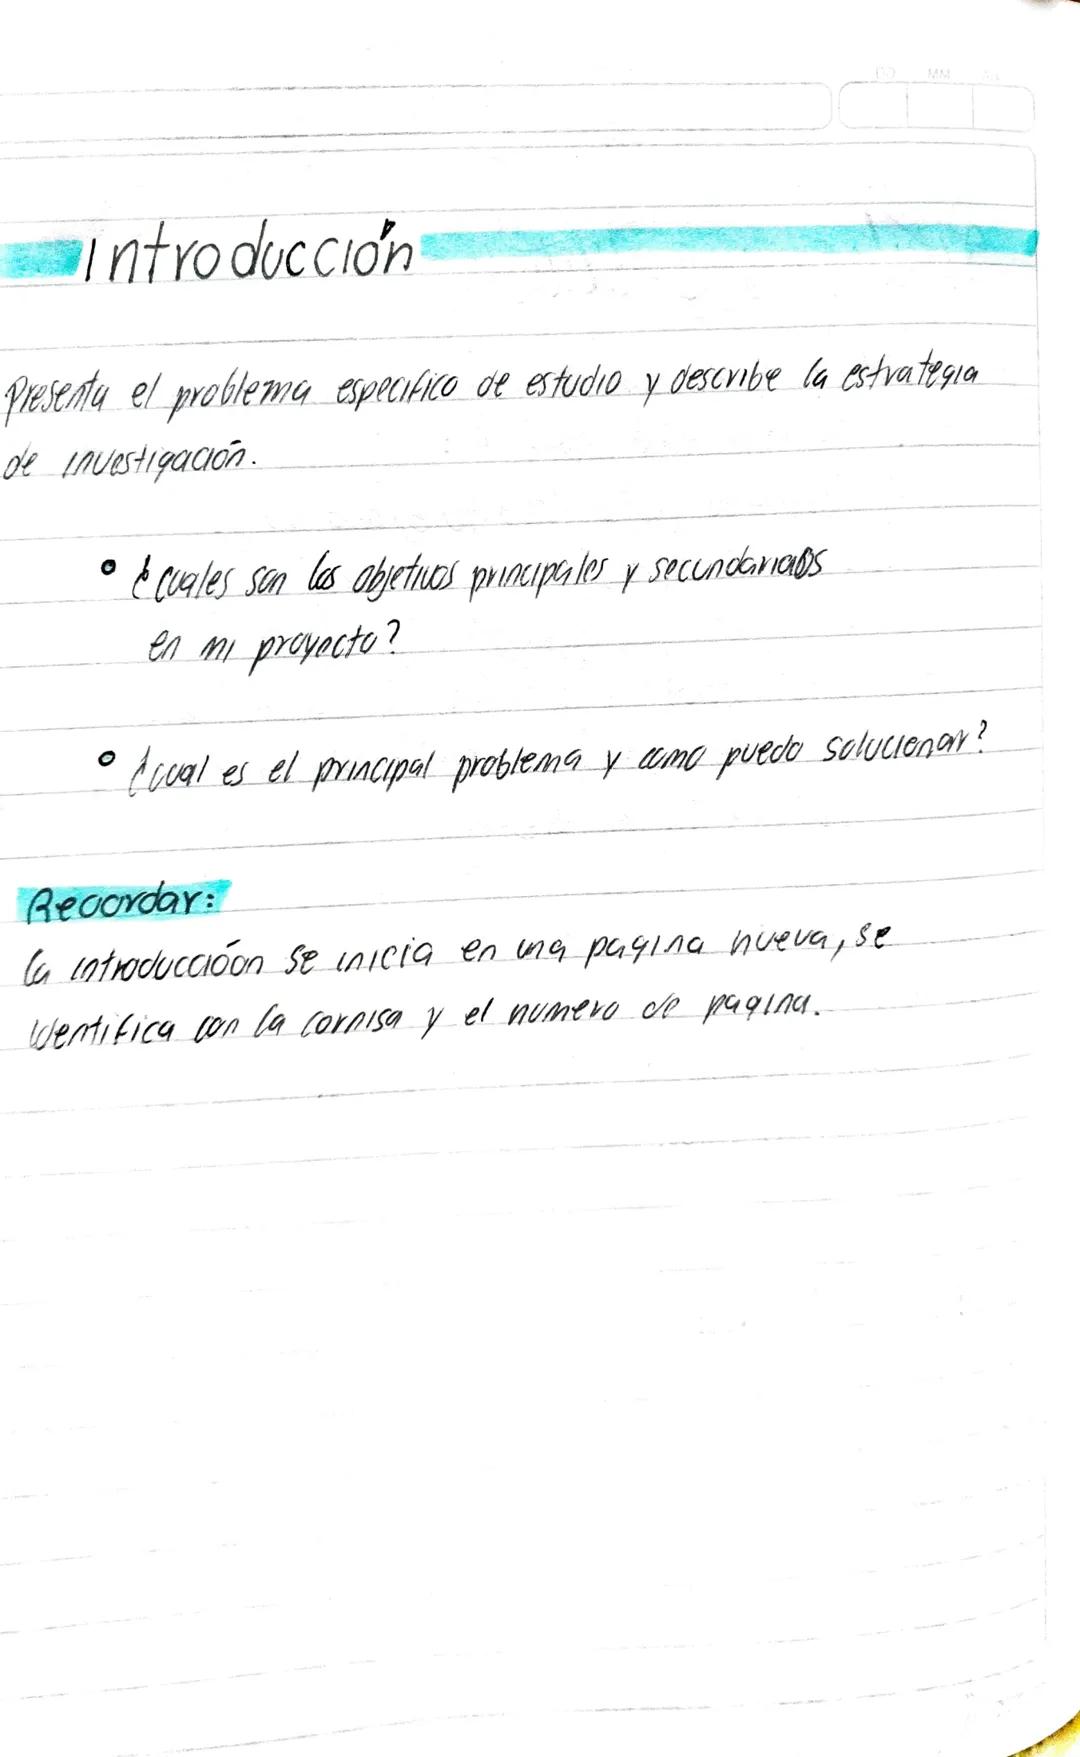 Introducción
Presenta el problema especifico de estudio y describe la estrategia
de investigación.
¿cuales son los objetivos principales y secundarios
en mi proyecto?
¿cual es el principal problema y como puedo solucionar?
Recordar:
la introducción se inicia en una pagina nueva, se
identifica con la cornisa y el numero de pagina.